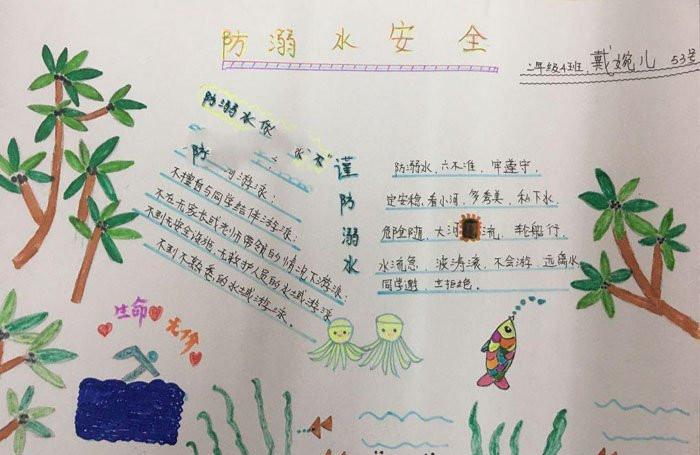 防溺水安全
二年级4班 戴婉儿 53号
防溺水
防 游泳；
不擅自与同学结伴游泳；
不在无家长或老师带领的情况下游泳；
不到无安全设施、无救护人员的水域游泳；
不到不熟悉的水域游泳。
谨防溺水
防溺水，六不准，牢遵守，
定安稳，看小河，多秀美，私下水，
危险随，大河 流，轮船行，
水流急，波涛滚，不会游，远离水，
同学邀，立拒绝。
生命 无价